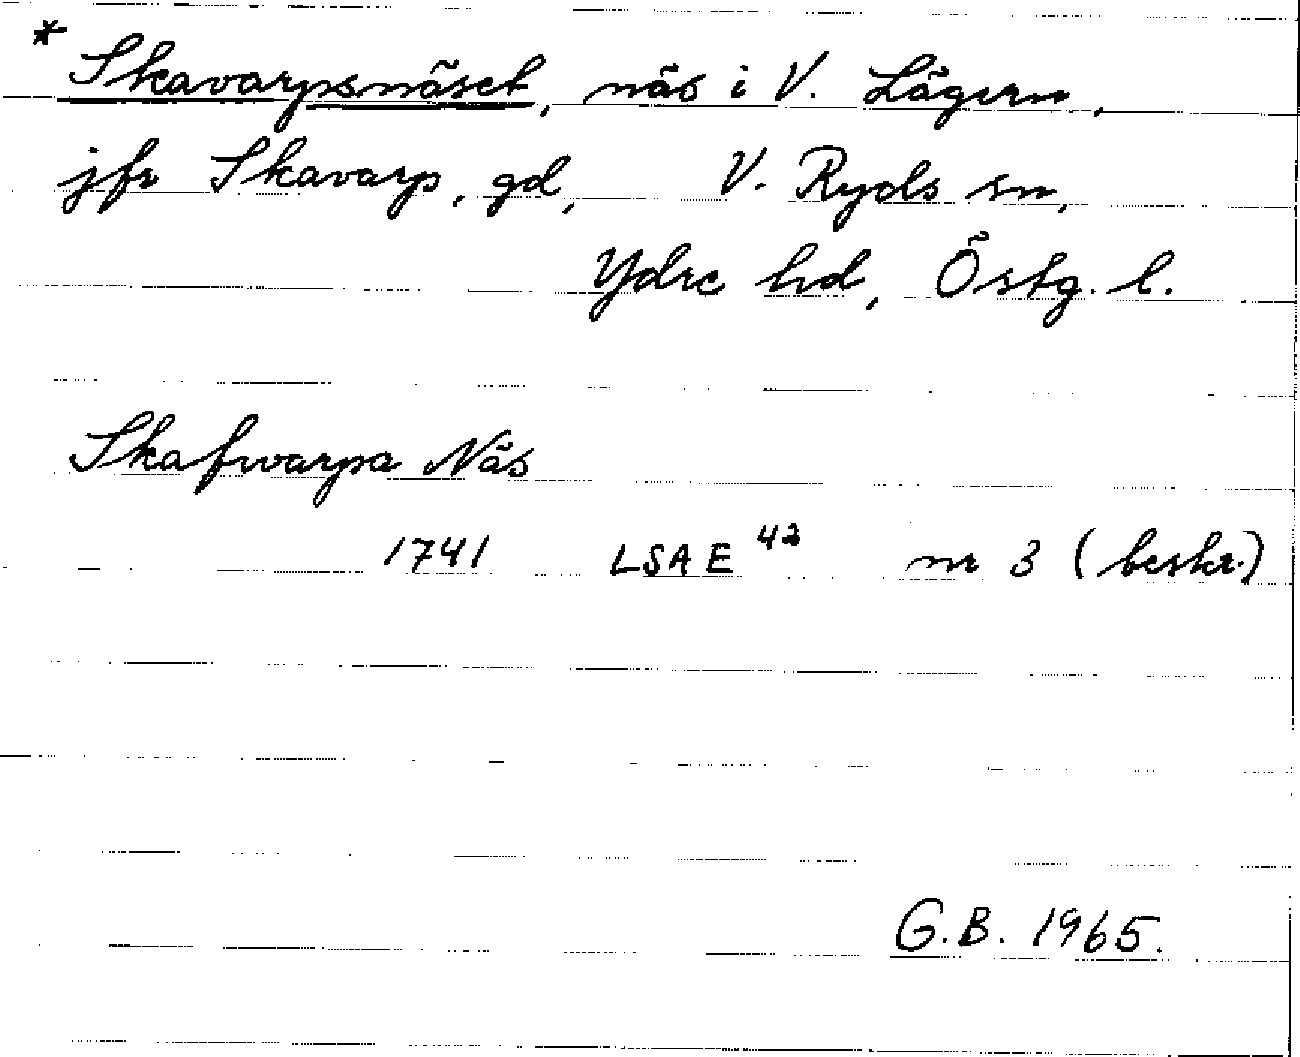 * Skavarpsnäset, näs i V. Lägern,
jfr Skavarp, gd, V. Ryds sn,
Ydre hd, Östg. l.
Skafwarpa Näs
1741 LSA E 42 nr 3 (beskr.)
G.B. 1965.